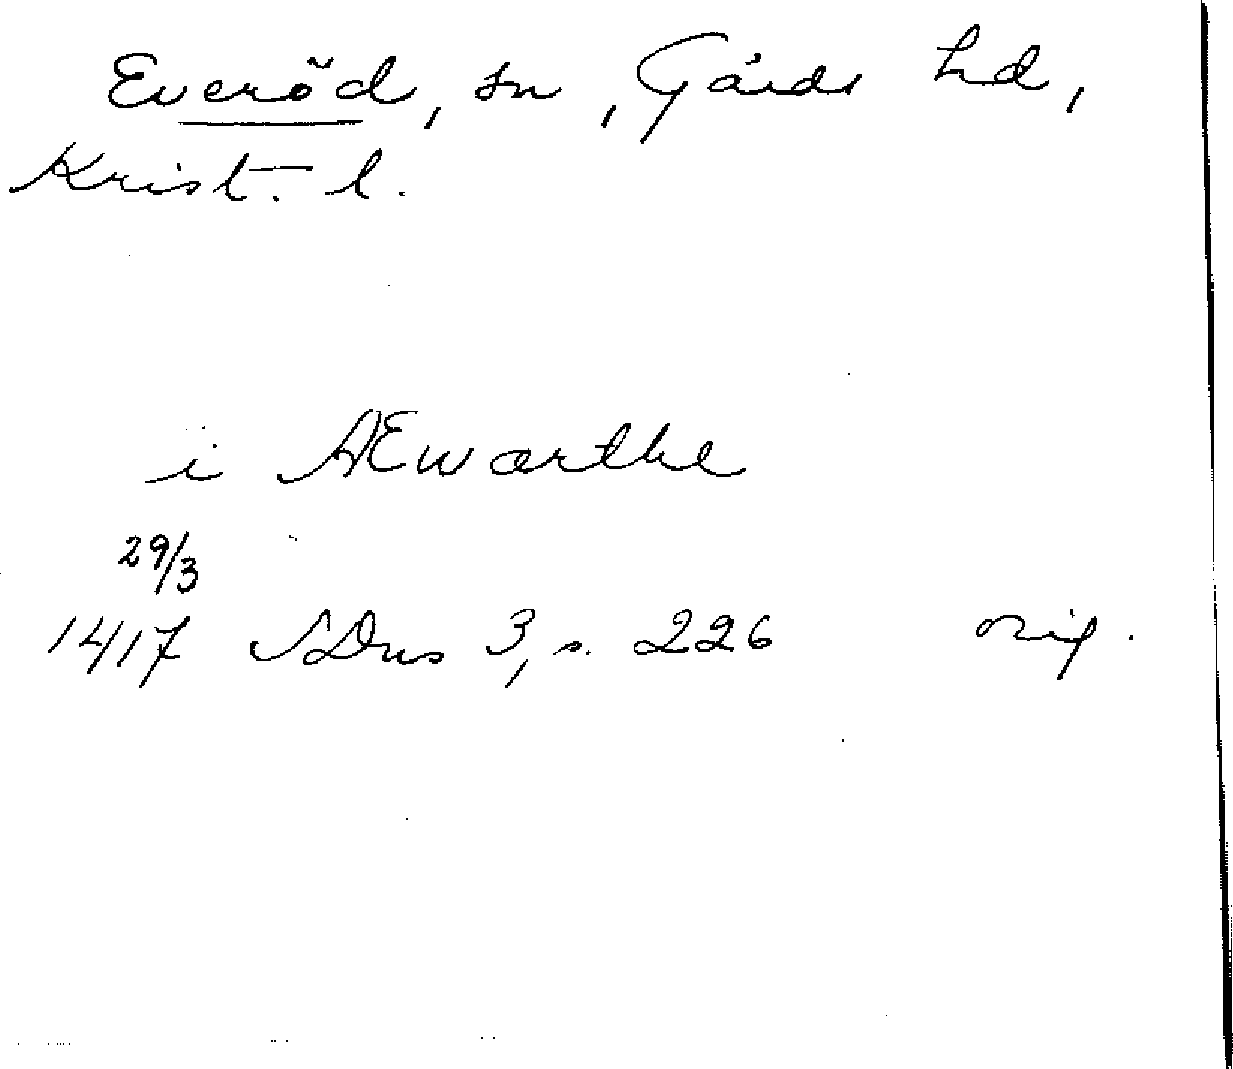 Everöd, sn, Gärds hd,
Krist. l.
i AEwarthe
29/3
1417 SDns 3, s. 226 orig.